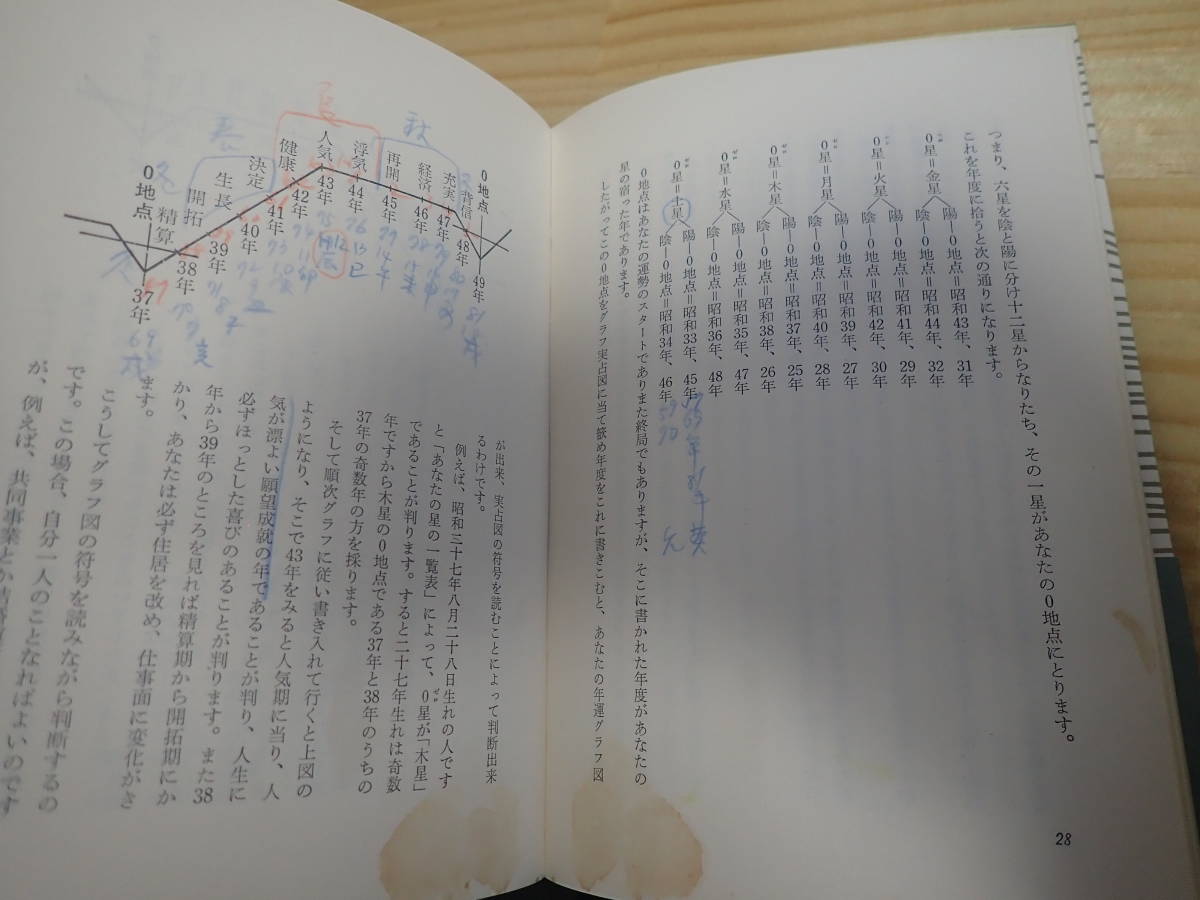 つまり、六星を陰と陽に分け十二星からなりたち、その一星があなたの0地点にとります。
これを年度に拾うと次の通りになります。
0星＝金星
陽―0地点＝昭和43年、31年
陰―0地点＝昭和44年、32年
0星＝火星
陽―0地点＝昭和41年、29年
陰―0地点＝昭和42年、30年
0星＝月星
陽―0地点＝昭和39年、27年
陰―0地点＝昭和40年、28年
0星＝木星
陽―0地点＝昭和37年、25年
陰―0地点＝昭和38年、26年
0星＝水星
陽―0地点＝昭和35年、47年
陰―0地点＝昭和36年、48年
0星＝土星
陽―0地点＝昭和33年、45年
陰―0地点＝昭和34年、46年
0地点はあなたの運勢のスタートでありまた終局でもありますが、そこに書かれた年度があなたの
星の宿った年であります。
したがってこの0地点をグラフ実占図に当て嵌め年度をこれに書きこむと、あなたの年運グラフ図
28
が出来、実占図の符号を読むことによって判断出来
るわけです。
例えば、昭和三十七年八月二十八日生れの人です
と「あなたの星の一覧表」によって、0星が「木星」
であることが判ります。すると二十七年生れは奇数
年ですから木星の0地点である37年と38年のうちの
37年の奇数年の方を採ります。
そして順次グラフに従い書き入れて行くと上図の
ようになり、そこで43年をみると人気期に当り、人
気が漂よい願望成就の年であることが判り、人生に
必ずほっとした喜びのあることが判ります。また38
年から39年のところを見れば精算期から開拓期にか
かり、あなたは必ず住居を改め、仕事面に変化がき
ます。
こうしてグラフ図の符号を読みながら判断するの
です。この場合、自分一人のことなればよいのです
が、例えば、共同事業とか
0地点―49年
背信 48年
充実 47年
経済 46年
再開 45年
浮気 44年
人気 43年
健康 42年
決定 41年
生長 40年
開拓 39年
精算 38年
0地点 37年
秋
夏
春
冬